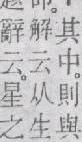 其中。則與
解云。从生
辭云。星之